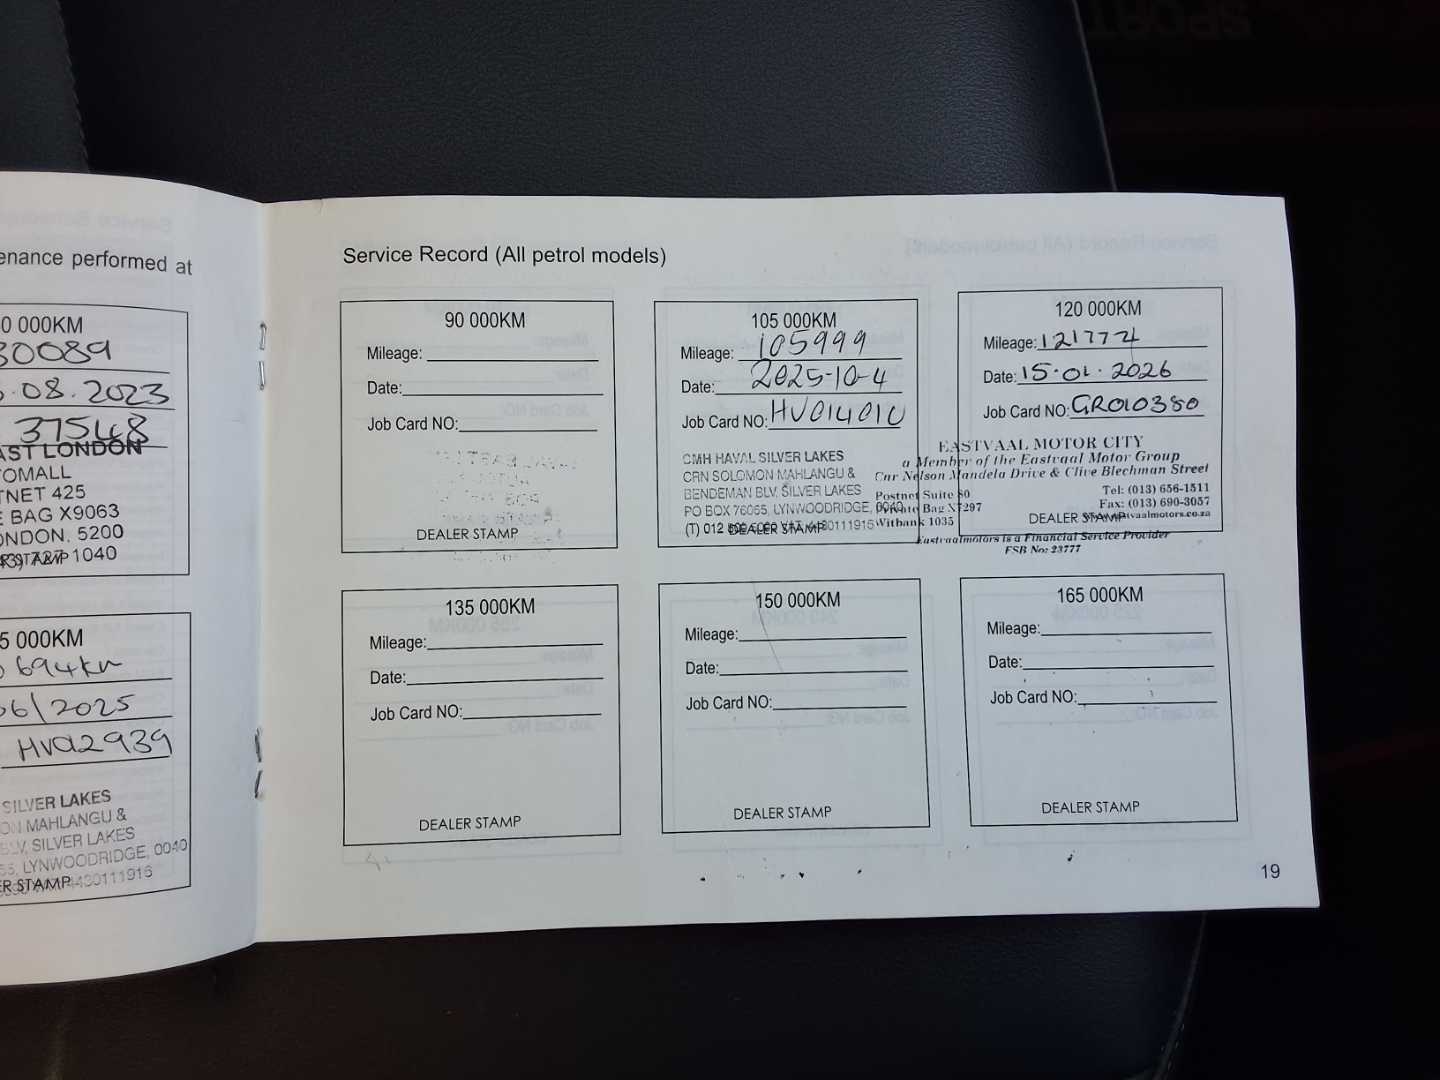 enance performed at
0 000KM
30089
.08.2023
37548
AST LONDON
TOMALL
TNET 425
E BAG X9063
ONDON, 5200
727 1040
5 000KM
694km
06/2025
HV012939
SILVER LAKES
ON MAHLANGU &
BLV, SILVER LAKES
65, LYNWOODRIDGE, 0040
ER STAMP 4430111916
Service Record (All petrol models)
90 000KM
Mileage:
Date:
Job Card NO:
DEALER STAMP
105 000KM
Mileage: 105999
Date: 2025-10-4
Job Card NO: HV014010
CMH HAVAL SILVER LAKES
CRN SOLOMON MAHLANGU &
BENDEMAN BLV, SILVER LAKES
PO BOX 76065, LYNWOODRIDGE, 0040
(T) 012 VAT 4430111916
DEALER STAMP
120 000KM
Mileage: 121774
Date: 15.01.2026
Job Card NO: GR010380
EASTVAAL MOTOR CITY
a Member of the Eastvaal Motor Group
Cnr Nelson Mandela Drive & Clive Blechman Street
Postnet Suite 80
Private Bag X7297
Witbank 1035
Tel: (013) 656-1511
Fax: (013) 690-3057
www.eastvaalmotors.co.za
DEALER STAMP
Eastvaalmotors is a Financial Service Provider
FSB No: 23777
135 000KM
Mileage:
Date:
Job Card NO:
DEALER STAMP
150 000KM
Mileage:
Date:
Job Card NO:
DEALER STAMP
165 000KM
Mileage:
Date:
Job Card NO:
DEALER STAMP
19
SPORT